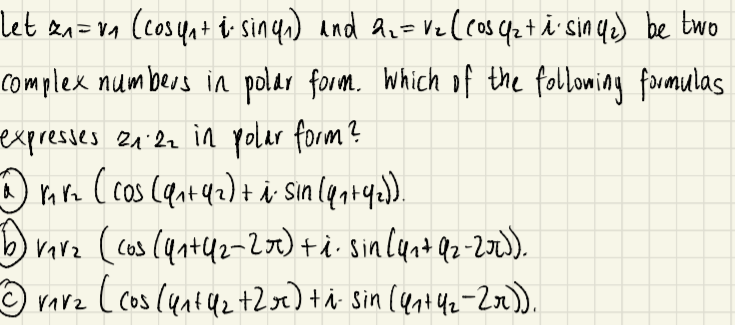 Let z₁ = r₁ (cos φ₁ + i · sin φ₁) and z₂ = r₂ (cos φ₂ + i · sin φ₂) be two
complex numbers in polar form. Which of the following formulas
expresses z₁ · z₂ in polar form?
ⓐ r₁ r₂ (cos (φ₁+φ₂) + i · sin (φ₁+φ₂)).
ⓑ r₁r₂ (cos (φ₁+φ₂-2π) + i · sin (φ₁+φ₂-2π)).
ⓒ r₁r₂ (cos (φ₁+φ₂+2π) + i · sin (φ₁+φ₂-2π)).